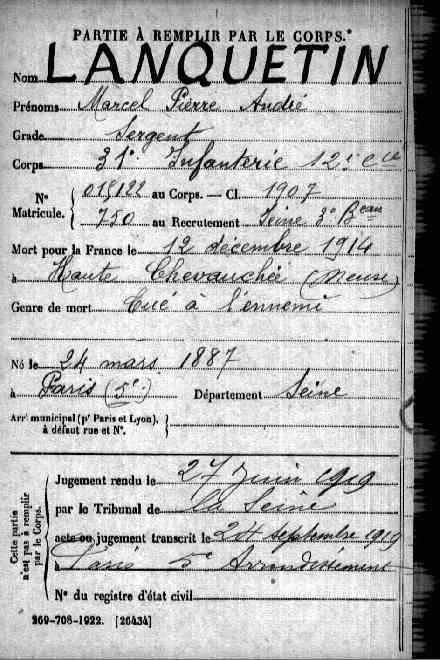 PARTIE À REMPLIR PAR LE CORPS.
Nom LANQUETIN
Prénoms Marcel Pierre André
Grade Sergent
Corps 31e Infanterie 12e Cie
N° Matricule. 015122 au Corps. — Cl. 1907
750 au Recrutement Seine 3e Beau
Mort pour la France le 12 décembre 1914
à Haute Chevauchée (Meuse)
Genre de mort Tué à l'ennemi
Né le 24 mars 1887
à Paris (5e) Département Seine
Arrt municipal (pr Paris et Lyon),
à défaut rue et N°.
Cette partie n'est pas à remplir par le Corps.
Jugement rendu le 27 Juin 1919
par le Tribunal de la Seine
acte ou jugement transcrit le 24 septembre 1919
à Paris 5e Arrondissement
N° du registre d'état civil
269-708-1922. [26434]